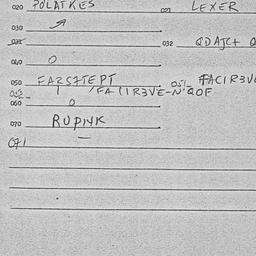 020 POLATKES 021 LEXER
030
031 032 QDAJC+ Q
040 O
050 FARSTEPT 051 FACIR3V
053 FACIR3VE-N QOF
060 O
070 RUPINK
071